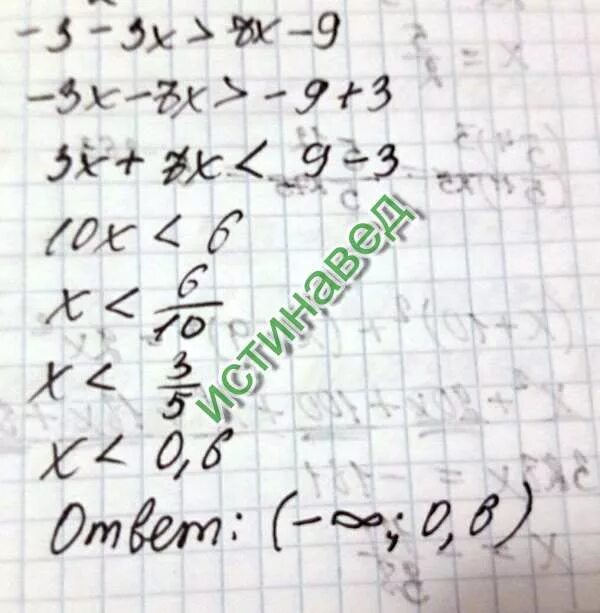 -3-3x>7x-9
-3x-7x>-9+3
3x+7x<9-3
10x<6
x<6/10
x<3/5
x<0,6
Ответ: (-∞; 0,6)
истинавед